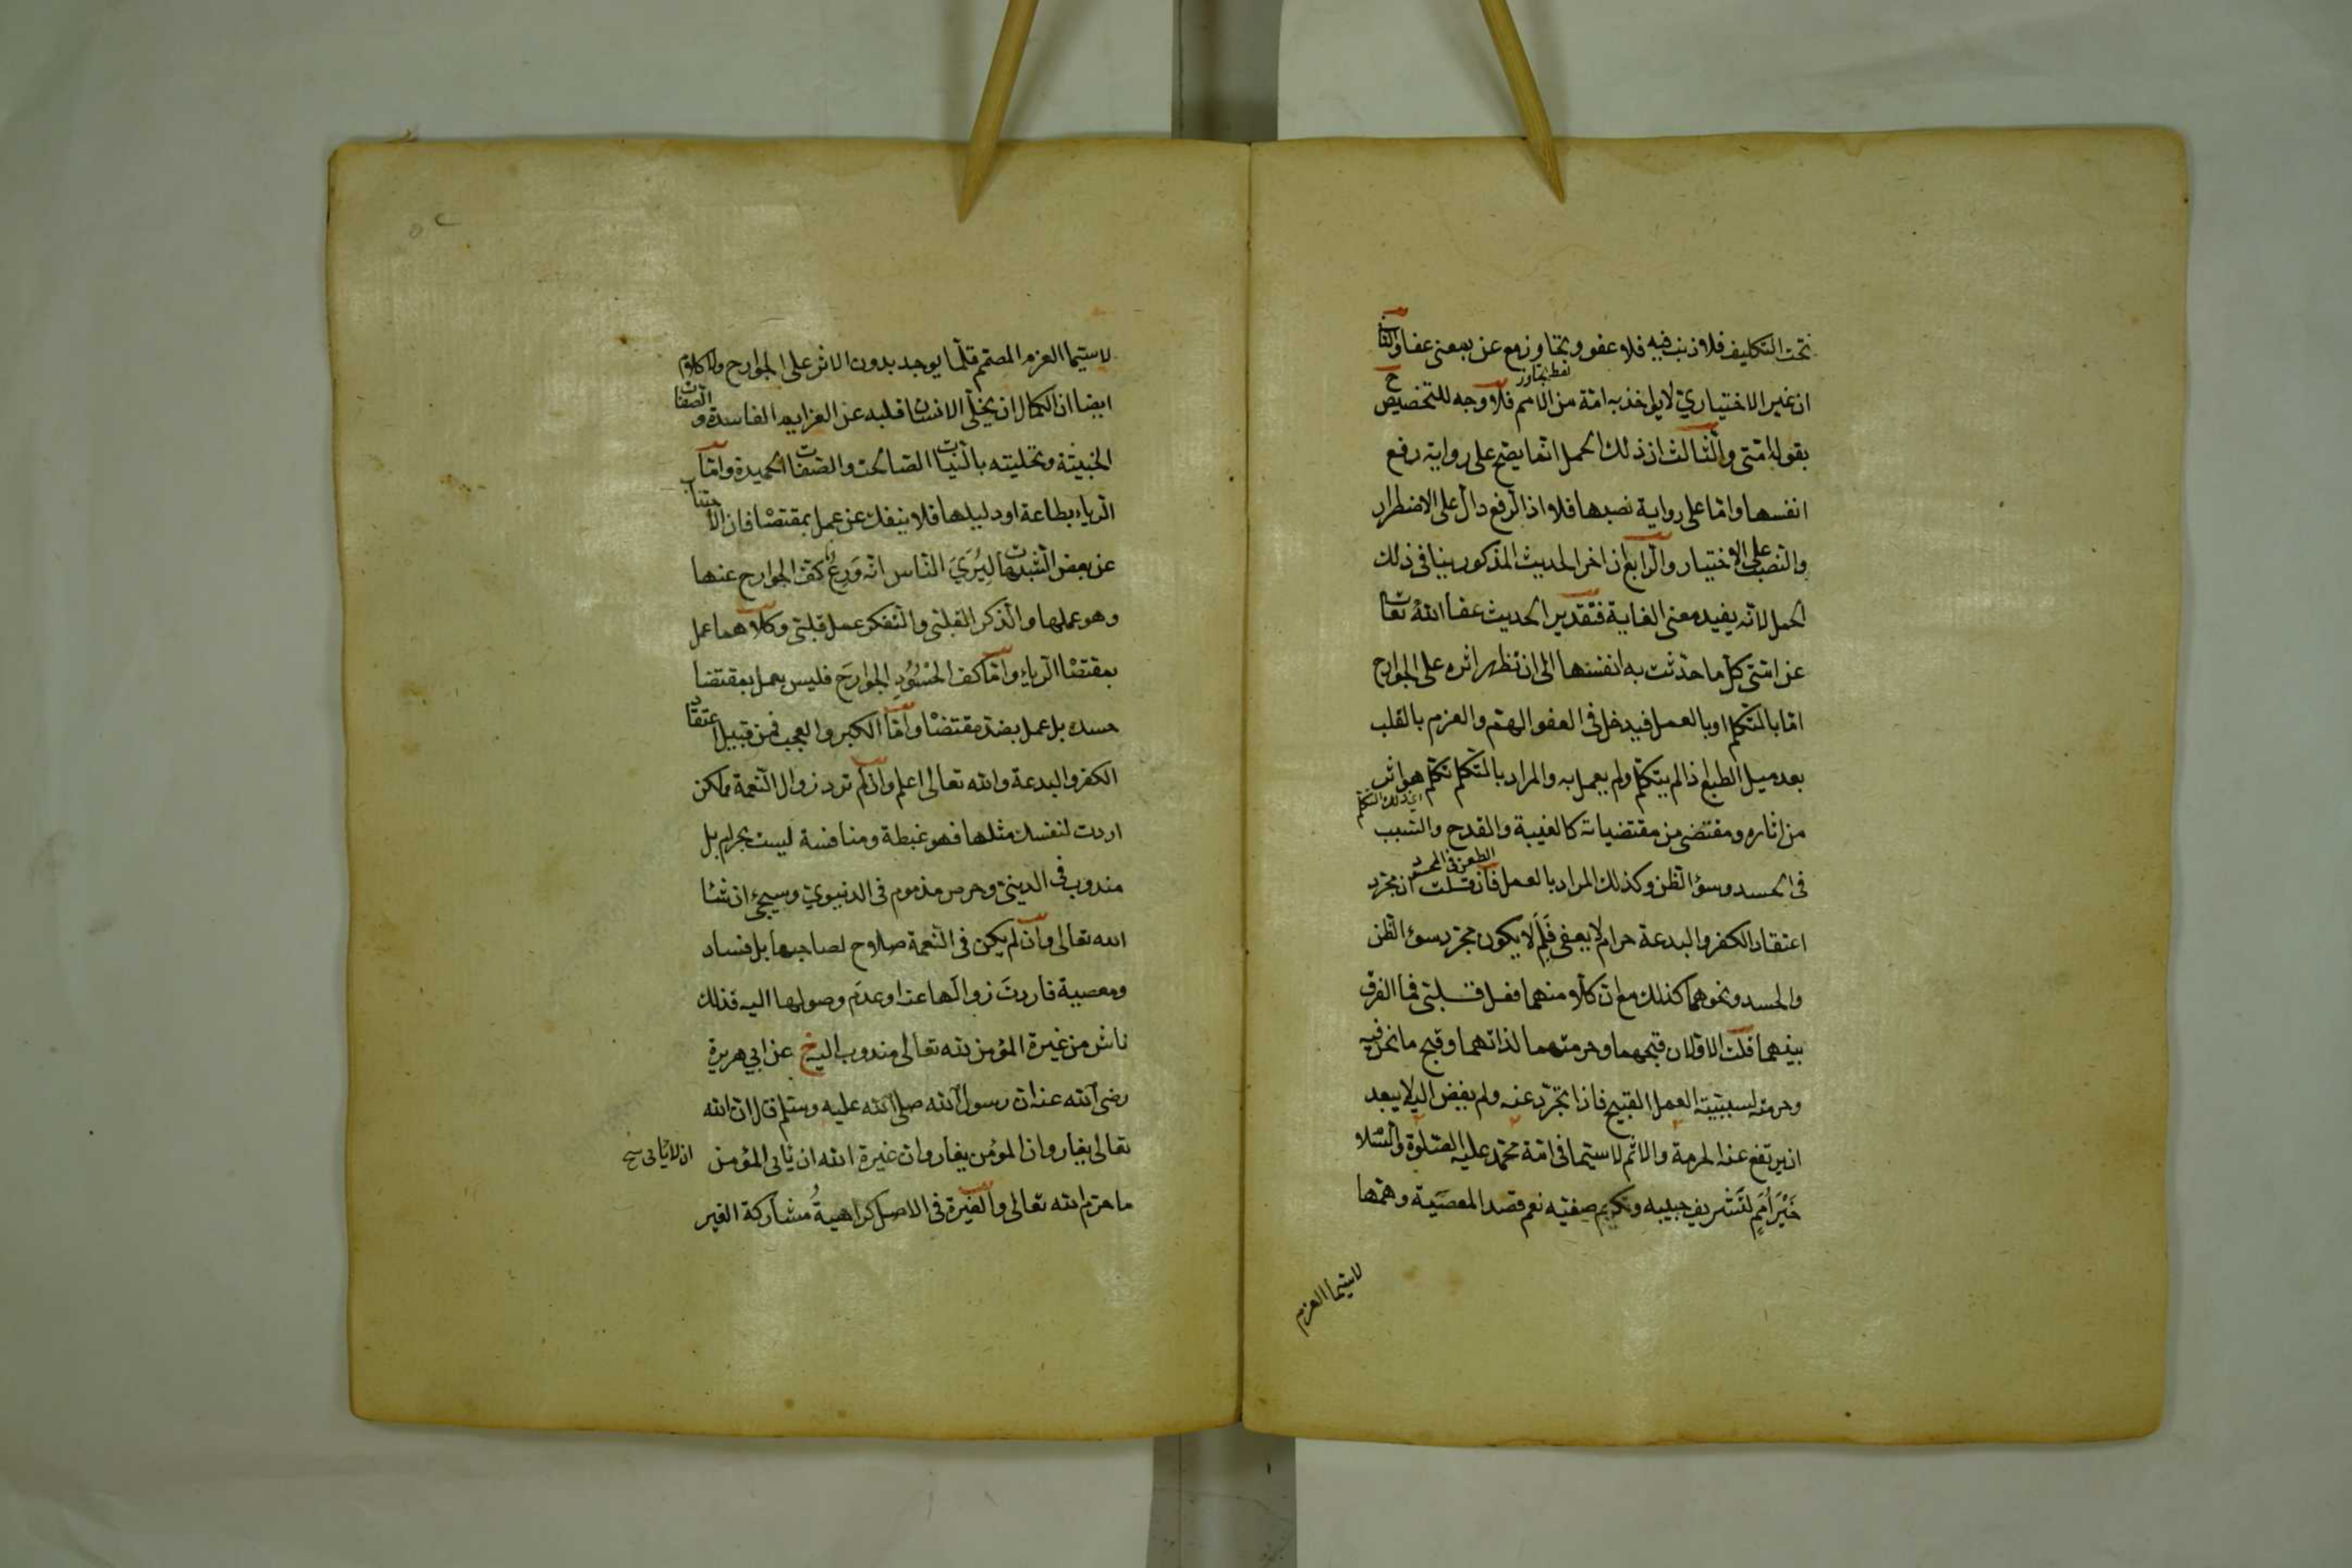 تحت التكليف فلا ذنب فيه فلا عفو وتجاوز مع عن بمعنى عفا والثانى
لفظ تجاوز
ان غير الاختياري لا يؤاخذ به امة من الامم فلا وجه للتخصيص ح
بقوله امتى والثالث ان ذلك الحمل انما يصح على رواية رفع
انفسها واما على رواية نصبها فلا اذ الرفع دال على الاضطرار
والنصب على الاختيار والرابع ان اخر الحديث المذكور ينافى ذلك
الحمل لانه يفيد معنى الغاية فتقدير الحديث عفا الله تعالى
عن امتى كل ما حدثت به انفسها الى ان تظهر اثره على الجوارح
اما بالتكلم او بالعمل فيدخل فى العفو الهم والعزم بالقلب
بعد ميل الطبع اذا لم يتكلم ولم يعمل به والمراد بالتكلم تكلم هو اثر
اى ذلك التكلم
من اثاره ومقتضى من مقتضياته كالغيبة والقدح والسب
الطعن فى الحسد
فى الحسد وسوء الظن وكذلك المراد بالعمل فان قلت ان مجرد
اعتقاد الكفر والبدعة حرام لا يعفى فَلِمَ لا يكون مجرد سوء الظن
والحسد ونحوهما كذلك مع ان كلا منهما فعل قلبى فما الفرق
بينهما قلت الاولان قبحهما وحرمتهما لذاتهما وقبح ما نحن فيه
وحرمته لسببيته العمل القبيح فاذا تجرد عنه ولم يفض اليه لا يبعد
ان يرتفع عنه الحرمة والاثم لا سيما فى امة محمد عليه الصلوة والسلام
خَيْرَ اُمَمٍ لتشريف حبيبه وتكريم صفيه نعم قصد المعصية وهمها
لا سيما العزم
لا سيما العزم المصمم قلما يوجد بدون الاثر على الجوارح ولا كلام
ايضا ان الكمال ان يخلى الانسان قلبه عن العزايم الفاسدة والصفات
الخبيثة وتحليته بالنيات الصالحة والصفات الحميدة واما
الرياء بطاعة او دليلها فلا ينفك عن عمل بمقتضا فان الاجتناب
عن بعض الشبهات لِيُرِيَ الناس انه وَرِعٌ كف الجوارح عنها
وهو عملها والذكر القلبى والتفكر عمل قلبى وكلاهما عمل
بمقتضا الرياء واما كف الحسود الجوارحَ فليس بعمل بمقتضا
حسده بل عمل بضد مقتضا واما الكبر والعجب فمن قبيل اعتقاد
الكفر والبدعة والله تعالى اعلم وان لم ترد زوال النعمة ولكن
اردت لنفسك مثلها فهو غبطة ومنافسة ليست بحرام بل
مندوب فى الدينى وحرص مذموم فى الدنيوي وسيجئ ان شا
الله تعالى وان لم يكن فى النعمة صلاح لصاحبها بل فساد
ومعصية فاردتَ زوالها عنه او عدم وصولها اليه فذلك
ناش من غيرة المؤمن لله تعالى مندوب اليه خ م عن ابي هريرة
رضى الله عنه ان رسول الله صلى الله عليه وسلم قال ان الله
تعالى يغار وان المؤمن يغار وان غيرة الله ان يأتى المؤمن
ان لا يأتى نسخ
ما حرم الله تعالى والغيرة فى الاصل كراهيةُ مشاركة الغير